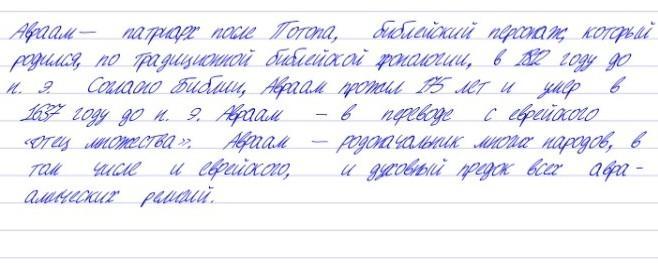 Авраам — патриарх после Потопа, библейский персонаж, который
родился, по традиционной библейской хронологии, в 1812 году до
н. э. Согласно Библии, Авраам прожил 175 лет и умер в
1637 году до н. э. Авраам - в переводе с еврейского
«отец множества». Авраам — родоначальник многих народов, в
том числе и еврейского, и духовный предок всех авра-
амических религий.